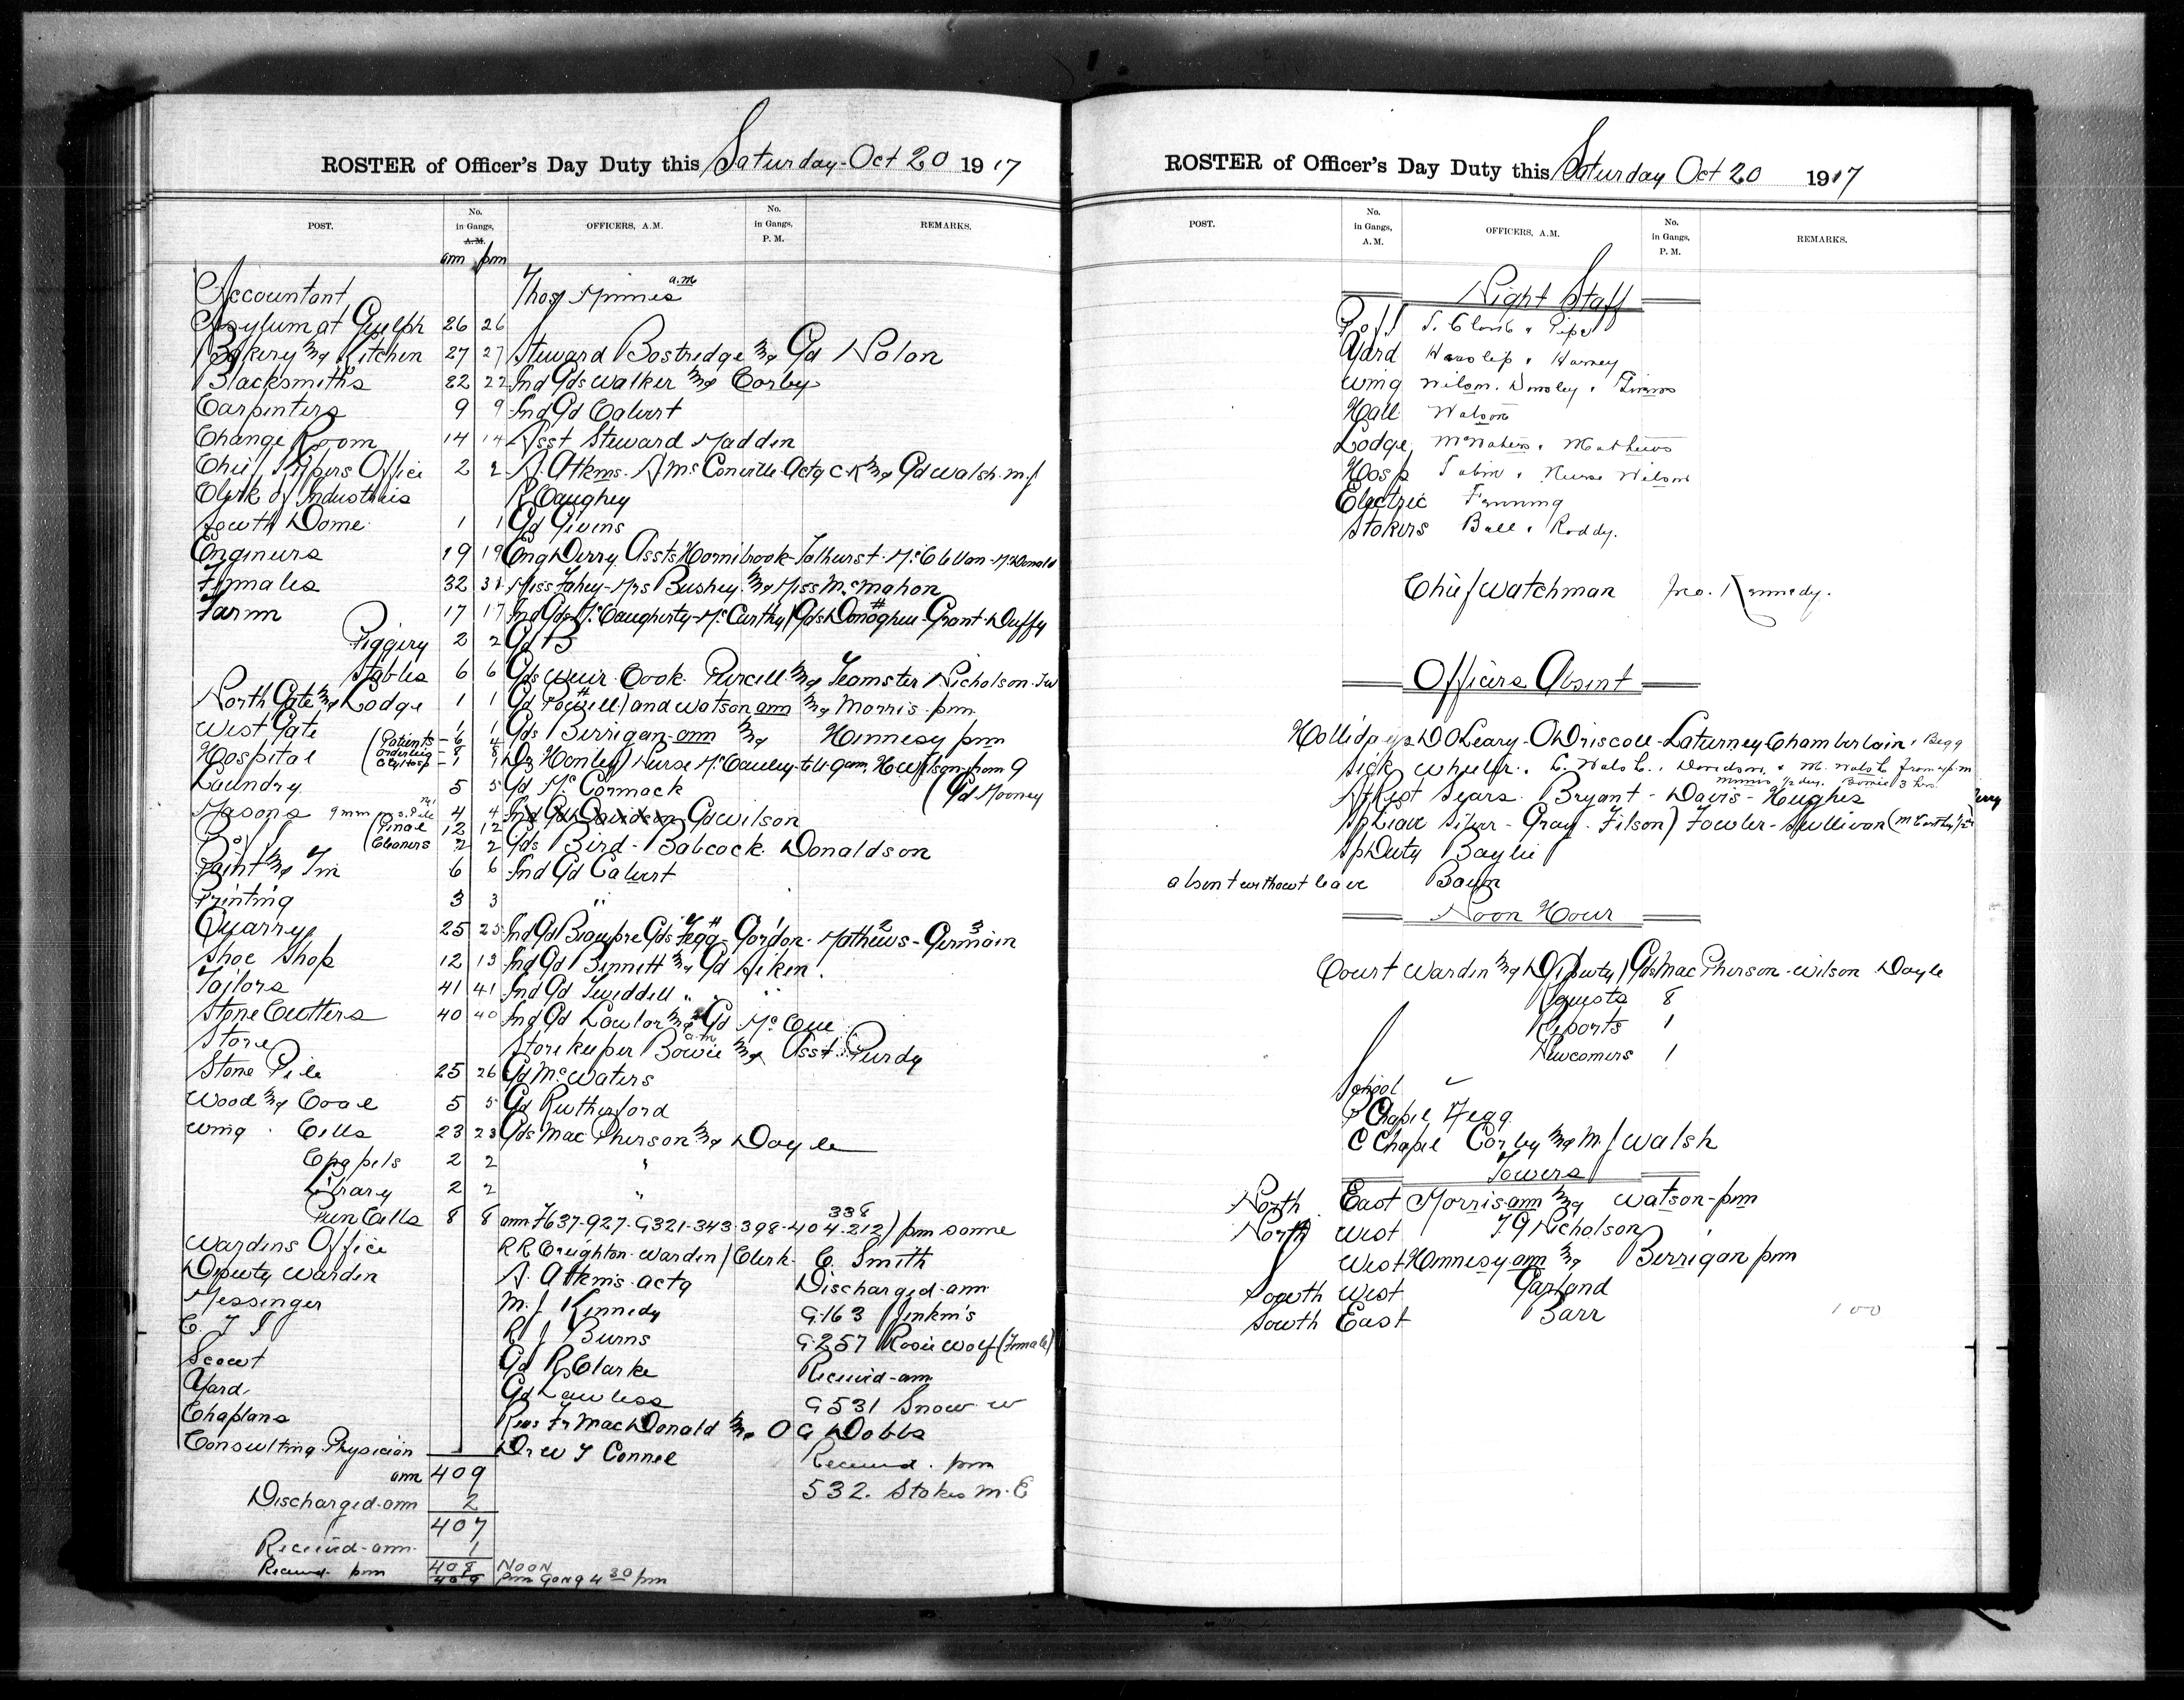 ROSTER of Officer's Day Duty this Saturday-Oct 20 1917
POST. No. in Gangs, A.M. OFFICERS, A.M. No. in Gangs, P.M. REMARKS.
am pm
Accountant Thos Minnes a.m
Asylum at Guelph 26 26
Bakery & Kitchen 27 27 Steward Bostridge & Gd Nolon
Blacksmiths 22 22 Ind Gds Walker & Corby
Carpenters 9 9 Ind Gd Calvert
Change Room 14 14 Asst Steward Madden
Chief Kprs Office 2 2 A. Atkins. A McConville Actg C.K & Gd Walsh. M.J
Clerk of Industries R Caughey
South Dome 1 1 Gd Givens
Engineers 19 19 Eng Derry Assts Hornibrook-Tolhurst-McClellan-McDonald
Females 32 31 Miss Fahey-Mrs Bushey & Miss McMahon
Farm 17 17 Ind Gds McCaugherty-McCarthy/Gds Donoghue-Grant-Duffy
Piggery 2 2 Gd B
Stables 6 6 Gds Weir Cook Purcell & Teamster Nicholson
North Gate & Lodge 1 1 Gd Powell) and Watson am & Morris-pm
West Gate 1 Gds Berrigan-am & Hennesy pm
Hospital (Patients-6 4
Orderlies-8 8
1 1 Dr Hanley) Nurse McCauley-to 9 am, from 9
Laundry 5 5 Gd McCormack (Gd Mooney
Masons 4 4 Ind Gd Davidson Gd Wilson
(Final 12 12
(Cleaners 2 2 Gds Bird-Babcock Donaldson
Paint & Tin 6 6 Ind Gd Calvert
Printing 3 3 "
Quarry 25 25 Ind Gd Beaupre Gds Fegg-Gordon-Mathews-Germain
Shoe Shop 12 13 Ind Gd Bennett & Gd Aiken
Tailors 41 41 Ind Gd Tweddell " "
Stone Cutters 40 40 Ind Gd Lawlor & Gd McCue
Store Storekeeper Bowie a.m & Asst Purdy
Stone Pile 25 26 Gd McWaters
Wood & Coal 5 5 Gd Rutherford
Wing Cells 23 23 Gds MacPherson & Doyle
Chapels 2 2 "
Library 2 2 "
Pun Cells 8 8 am F637-927-G321-343-398-404-212) pm same
338
Wardens Office RR Creighton-Warden/Clerk- C. Smith
Deputy Warden A. Atkins-actg Discharged-am
Messenger M.J Kennedy G.163 Jenkins
C. T I R J Burns G257 Rosie Wolf (Female)
Scout Gd R Clarke Received-am
Yard Gd Lawless G531 Snow W
Chaplans Revs Fr MacDonald & O G Dobbs
Consulting Physician Dr W T Connel Received. pm
am 409 532. Stokes M. E
Discharged-am 2
407
Received-am 1
408 Noon
Received pm 409 Pm Gang 4 30 pm
ROSTER of Officer's Day Duty this Saturday Oct 20 1917
POST. No. in Gangs, A.M. OFFICERS, A.M. No. in Gangs, P.M. REMARKS.
Night Staff
Yard Haaslip & Harvey
Wing
Hall Watson
Lodge McWaters & Mathews
Hosp Tobin & Nurse Wilson
Electric Fanning
Stokers Ball & Roddy.
Chief Watchman Jno. Kennedy.
Officers Absent
Hollidays D OLeary-ODriscoll-Laturney Chamberlain, Begg
Sick Wheeler. C. Walsh. Davidson & M. Walsh from 4 p.m
Minnes ½ day. Bowie 3 hrs
At Rest Sears Bryant-Davis-Hughes
Sp Leave Silver-Gray-Filson) Fowler-Sullivan (McCarthy
Sp Duty Baylie
absent without leave
Noon Hour
Court Warden & Deputy/Gds MacPherson-Wilson Doyle
Requests 8
Reports 1
Newcomers 1
School ✓
P Chapel Fegg
C Chapel Corby & M J Walsh
Towers
North East Morris am & Watson-pm
North West T G Nicholson
West Hennesy am & Berrigan pm
South West Garland
South East Barr
100